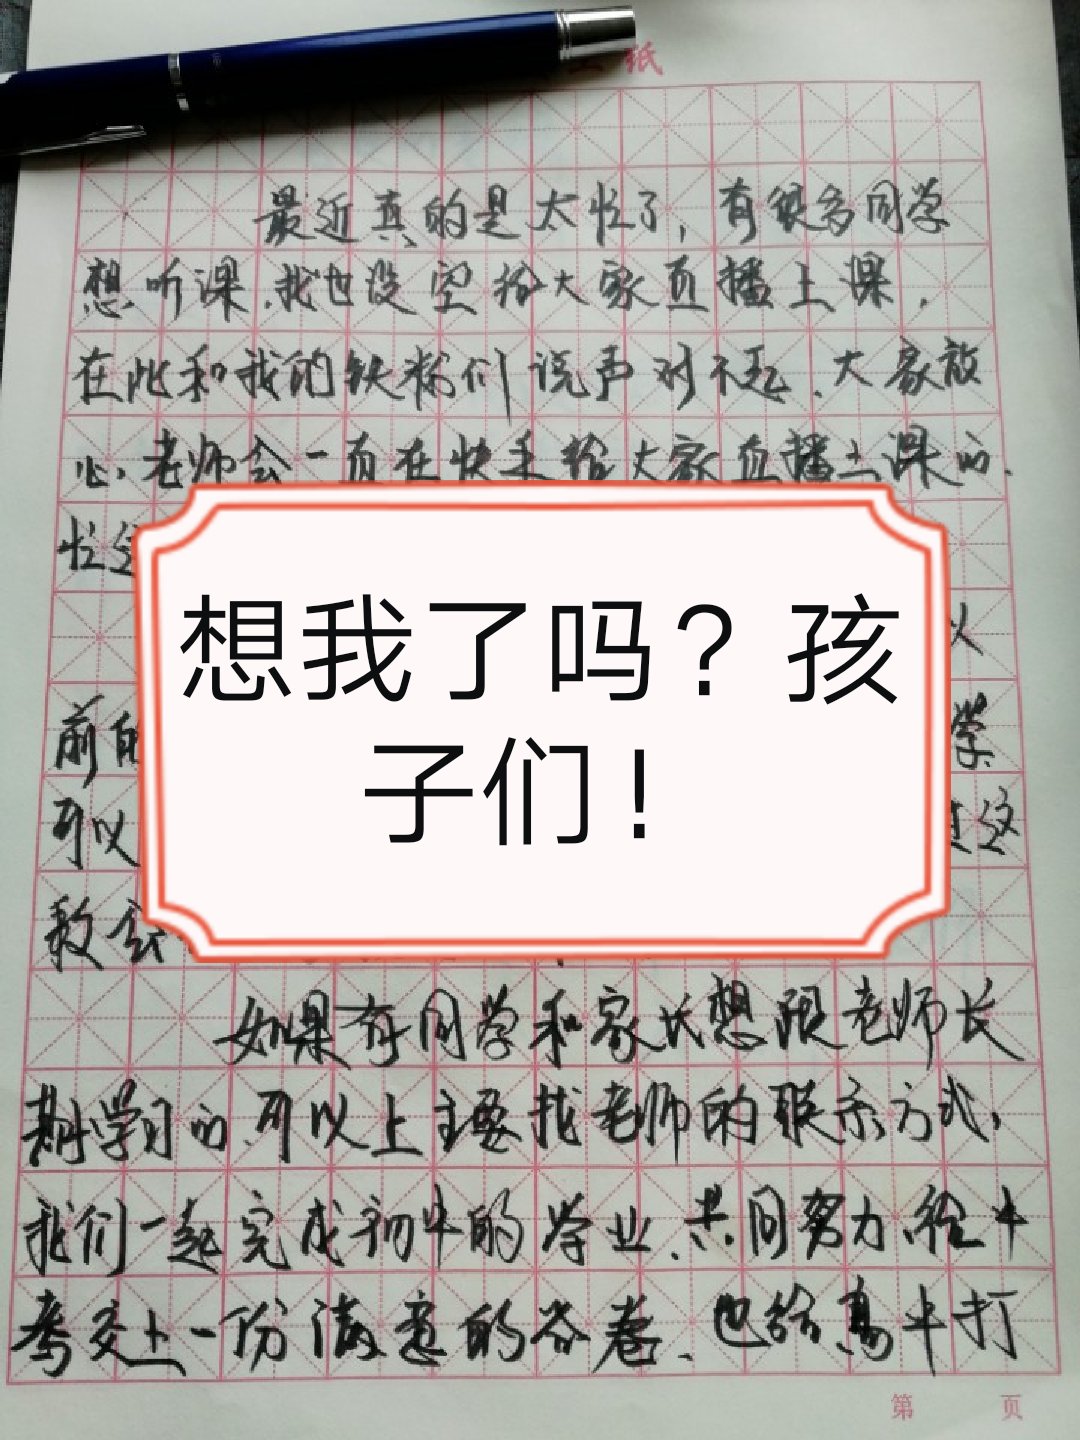 纸
最近真的是太忙了，有很多同学
想听课，我也没空给大家直播上课，
在此和我的铁粉们说声对不起、大家放
心、老师会一直在快手给大家直播上课的、
忙
想我了吗？孩
子们！
以
前的
学
可以
这
教会
如果有同学和家长想跟老师长
期学习的、可以上主要找老师的联系方式、
我们一起完成初中的学业、共同努力、给中
考交上一份满意的答卷、也给高中打
第 页